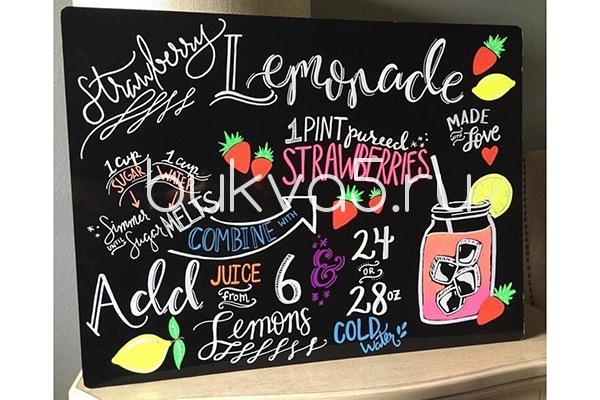 Strawberry Lemonade
MADE with Love
1 PINT pureed
STRAWBERRIES
1 cup SUGAR
1 cup WATER
Simmer
UNTIL Sugar MELTS
COMBINE WITH
Add JUICE from 6 Lemons
&
24
OR
28 oz
COLD Water
bukva5.ru